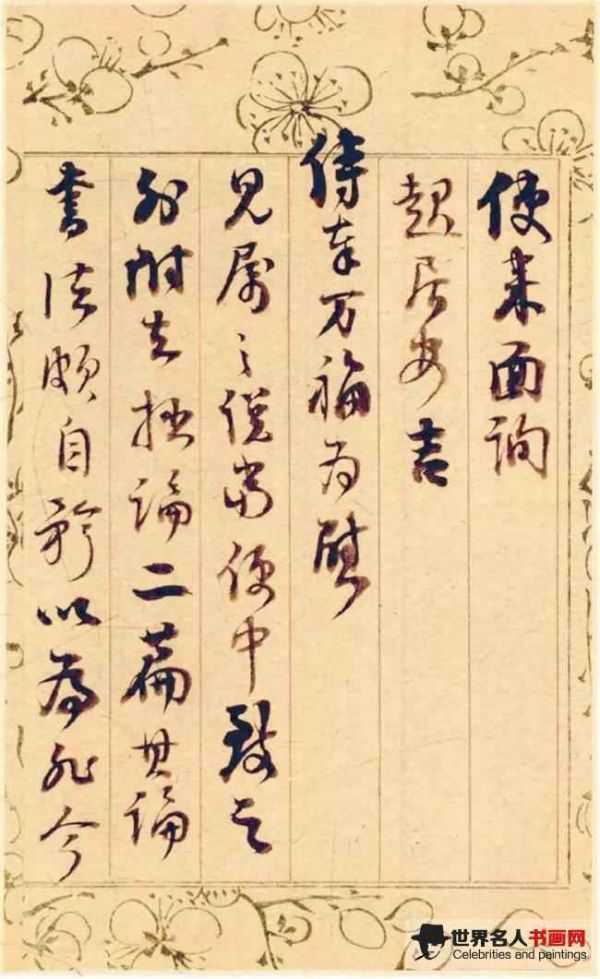 使来面询
起居安吉
侍奉万福为慰
见属之从当便中致之
外附去拙论二篇其论
书法颇自矜以为非今
世界名人书画网
Celebrities and paintings